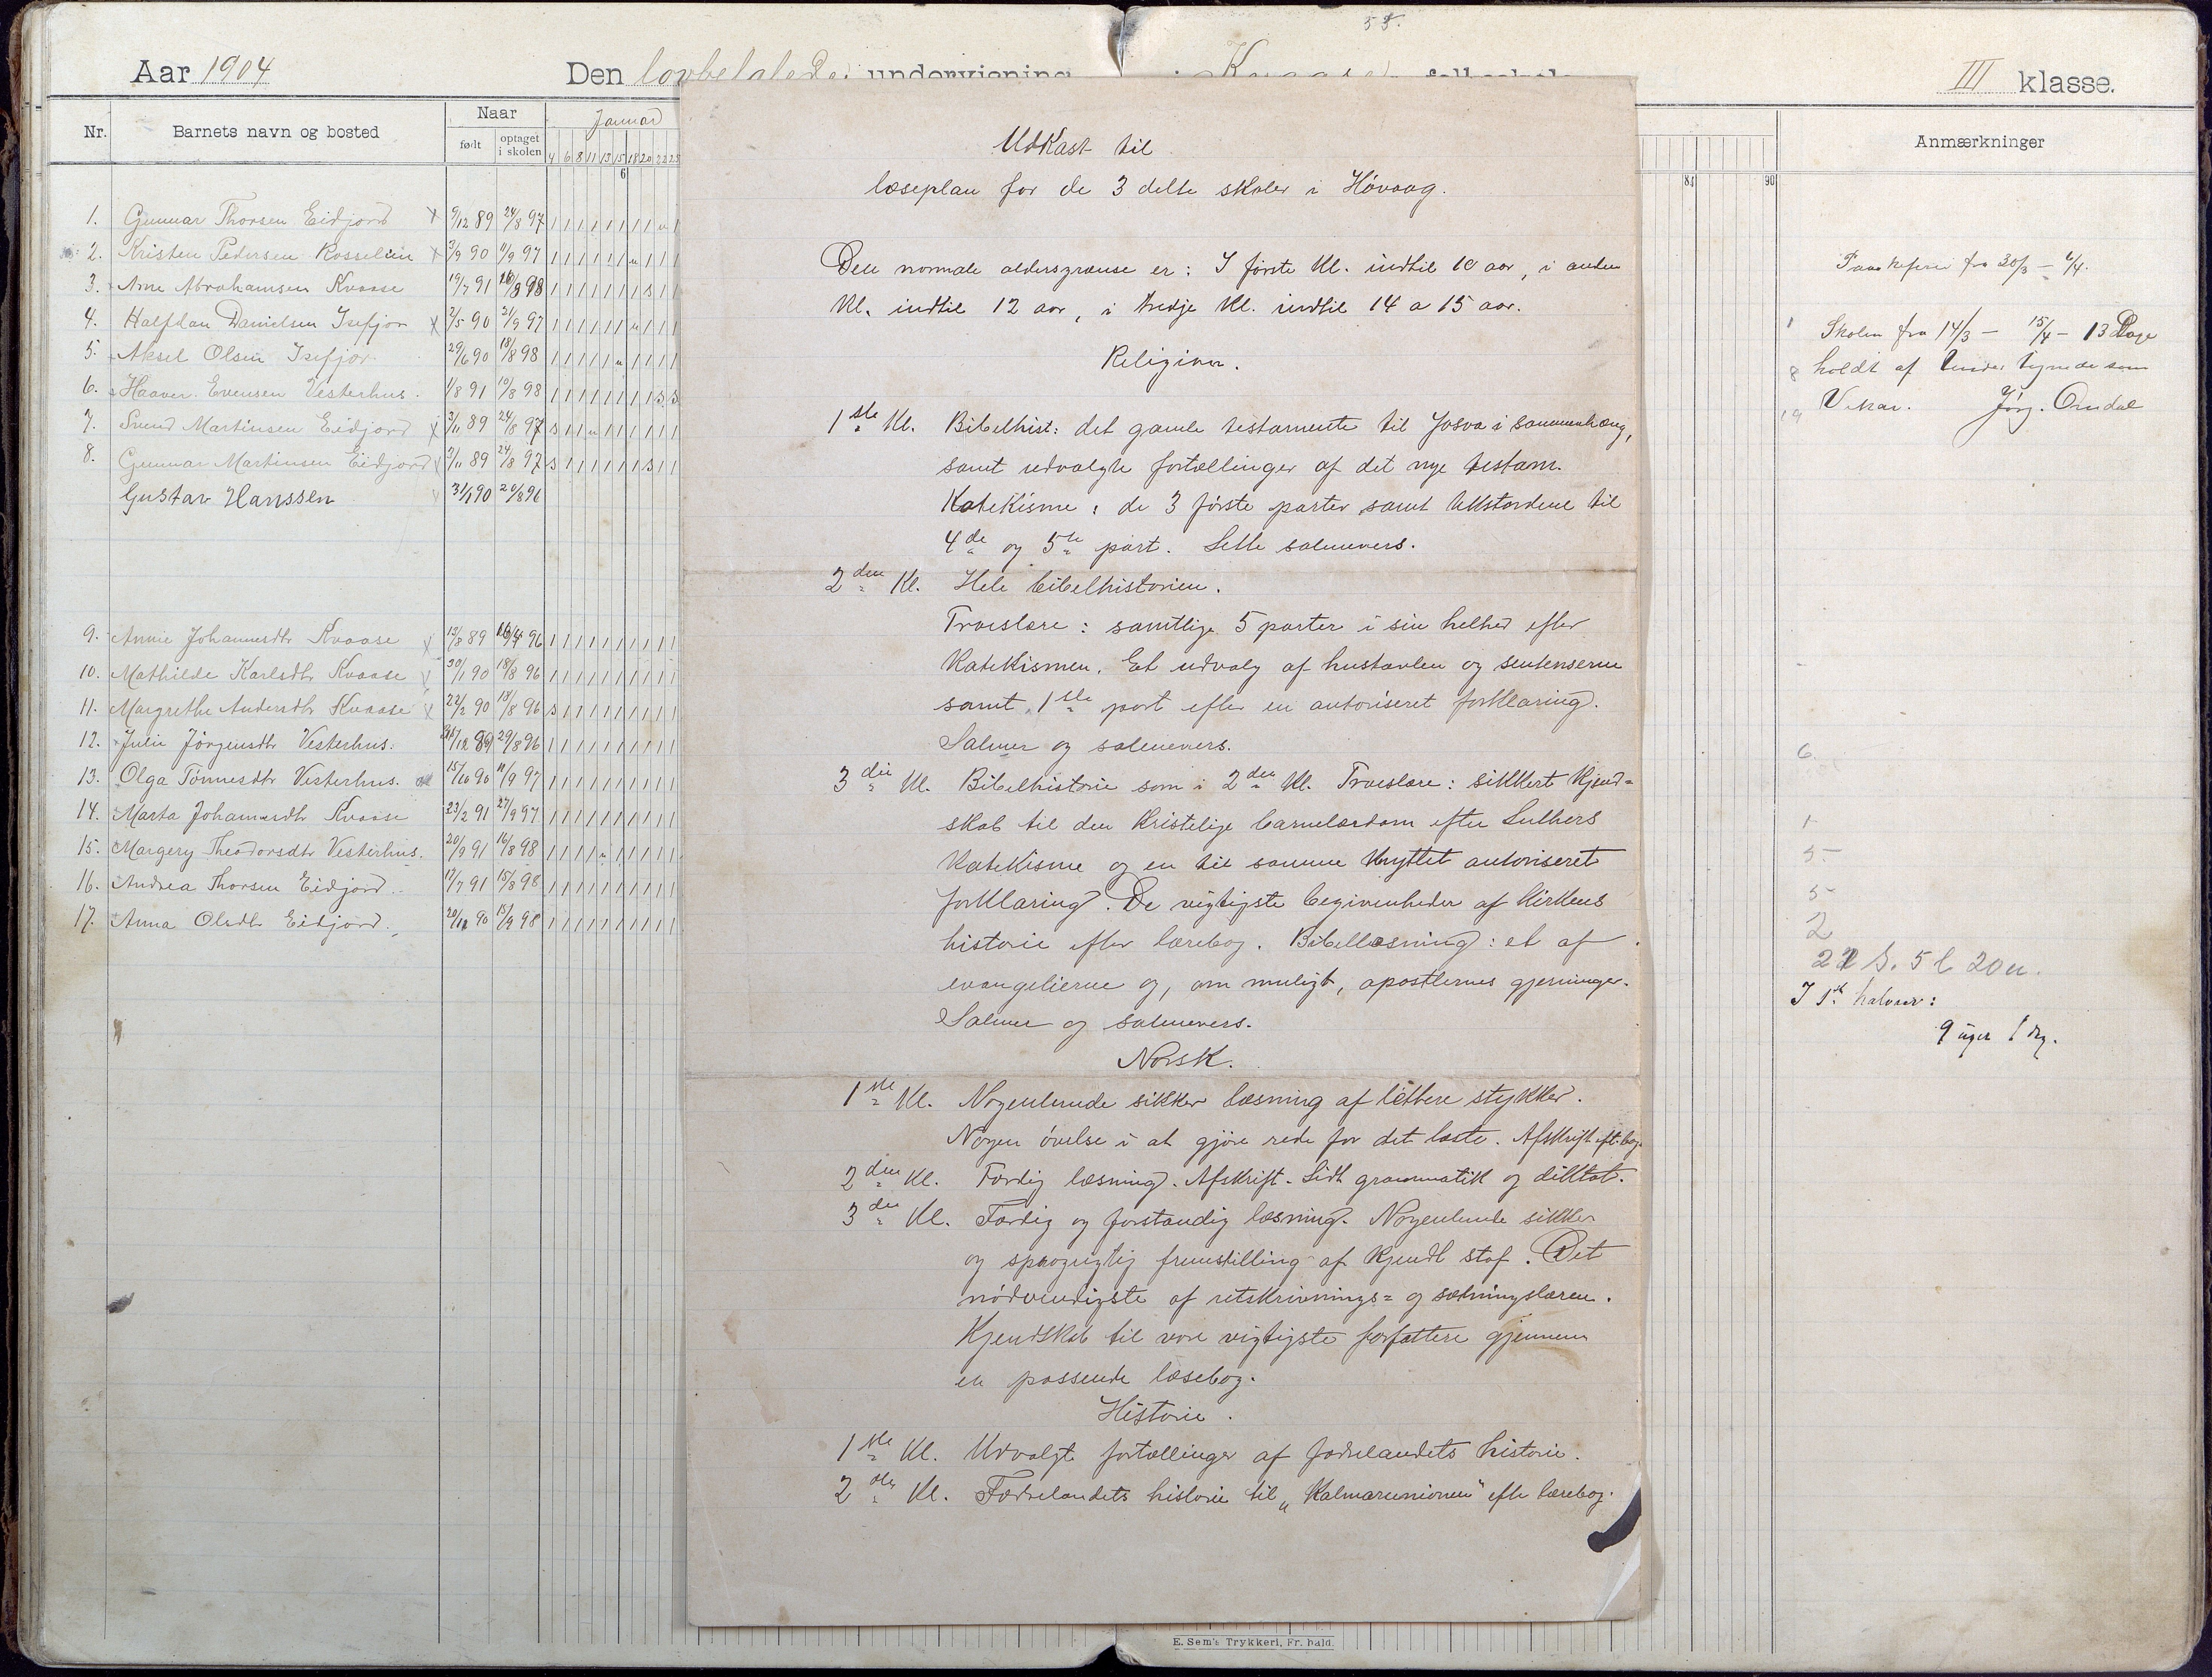 55.
Aar 1904 Den lovbefalede undervisning i Kvaase folkeskole III klasse.
Nr. Barnets navn og bosted Naar født optaget i skolen Januar Anmærkninger
4 6 8 11 13 15 18 20 22 25
6 84 90
1. Gunnar Thorsen Eidjord x 9/12 89 24/8 97
2. Kristen Pedersen Rosselien x 3/9 90 11/9 97
3. Arne Abrahamsen Kvaase 19/7 91 16/8 98
4. Halfdan Danielsen Isefjør x 2/5 90 21/9 97
5. Aksel Olsen Isefjør 29/6 90 18/8 98
6. Haaver Evensen Vesterhus. 1/8 91 19/8 98
7. Svend Martinsen Eidjord x 3/11 89 24/8 97
8. Gunnar Martinsen Eidjord x 3/11 89 24/8 97
Gustav Hanssen 31/1 90 20/8 96
9. Annie Johannesdtr Kvaase x 13/8 89 16/4 96
10. Mathilde Karlsdtr Kvaase 30/1 90 18/8 96
11. Margrethe Andersdtr Kvaase x 22/2 90 18/8 96
12. Julie Jörgensdtr Vesterhus. 29/8 96
13. Olga Tönnesdtr Vesterhus. 15/10 90 11/9 97
14. Marta Johannesdtr Kvaase 23/2 91 27/9 97
15. Margery Theodorsdtr Vesterhus. 20/9 91 16/8 98
16. Andrea Thorsen Eidjord. 17/7 91 15/8 98
17. Anna Olsdtr Eidjord. 20/12 90 15/9 98
Udkast til
læseplan for de 3 delte skoler i Hövaag.
Den normale aldersgrænse er: I förste Kl. indtil 10 aar, i anden
Kl. indtil 12 aar, i tredje Kl. indtil 14 a 15 aar.
Religion.
1ste Kl. Bibelhist: det gamle testamente til Josva i sammenhæng,
samt udvalgte fortællinger af det nye testam.
Katekisme: de 3 förste parter samt tekstordene til
4de og 5te part. Lette salmevers.
2den Kl. Hele bibelhistorien.
Troeslære: samtlige 5 parter i sin helhed efter
Katekismen. Et udvalg af hustavlen og sentenserne
samt 1ste part efter en autoriseret forklaring.
Salmer og salmevers.
3die Kl. Bibelhistorie som i 2den Kl. Troeslære: sikkert Kjend=
skab til den Kristelige barnelærdom efter Luthers
Katekisme og en til samme Knyttet autoriseret
forklaring. De vigtigste begivenheder af Kirkens
historie efter lærebog. Bibellæsning: et af
evangelierne og, om muligt, apostlernes gjerninger.
Salmer og salmevers.
Norsk.
1ste Kl. Nogenlunde sikker læsning af lettere stykker.
Nogen övelse i at gjöre rede for det læste. Afskrift eft. bog.
2den Kl. Færdig læsning. Afskrift. Lidt grammatik og diktat.
3die Kl. Færdig og forstandig læsning. Nogenlunde sikker
og sprogrigtig fremstilling af Kjendt stof. Det
nödvendigste af retskrivnings= og sætningslæren.
Kjendskab til vore vigtigste forfattere gjennem
en passende læsebog.
Historie.
1ste Kl. Udvalgte fortællinger af fædrelandets historie.
2den Kl. Fædrelandets historie til „Kalmarunionen" efter lærebog.
Paaskeferie fra 30/3 – 6/4.
Skolen fra 14/3 – 15/4 – 13 Dage
holdt af Undertegnede som
Vikar. Jörg. Omdal
1
8
19
6
1
5
5
2
21 S. 5 l 20 u.
I 1ste halvaar:
9 uger 1 dag.
E. Sem's Trykkeri, Fr. hald.